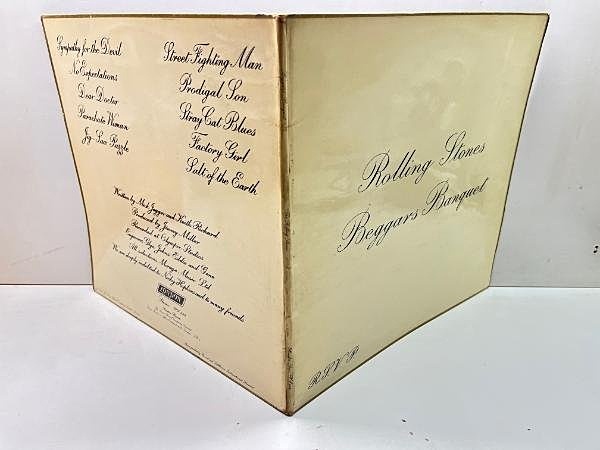 Sympathy for the Devil
No Expectations
Dear Doctor
Parachute Woman
Jig-Saw Puzzle
Street Fighting Man
Prodigal Son
Stray Cat Blues
Factory Girl
Salt of the Earth
Written by Mick Jagger and Keith Richard
Produced by Jimmy Miller
Recorded at Olympic Studios
Engineers Glyn Johns Eddie and Gene
All selections Mirage Music Ltd
We are deeply indebted to Nicky Hopkins and to many friends
LONDON
Rolling Stones
Beggars Banquet
R.S.V.P.